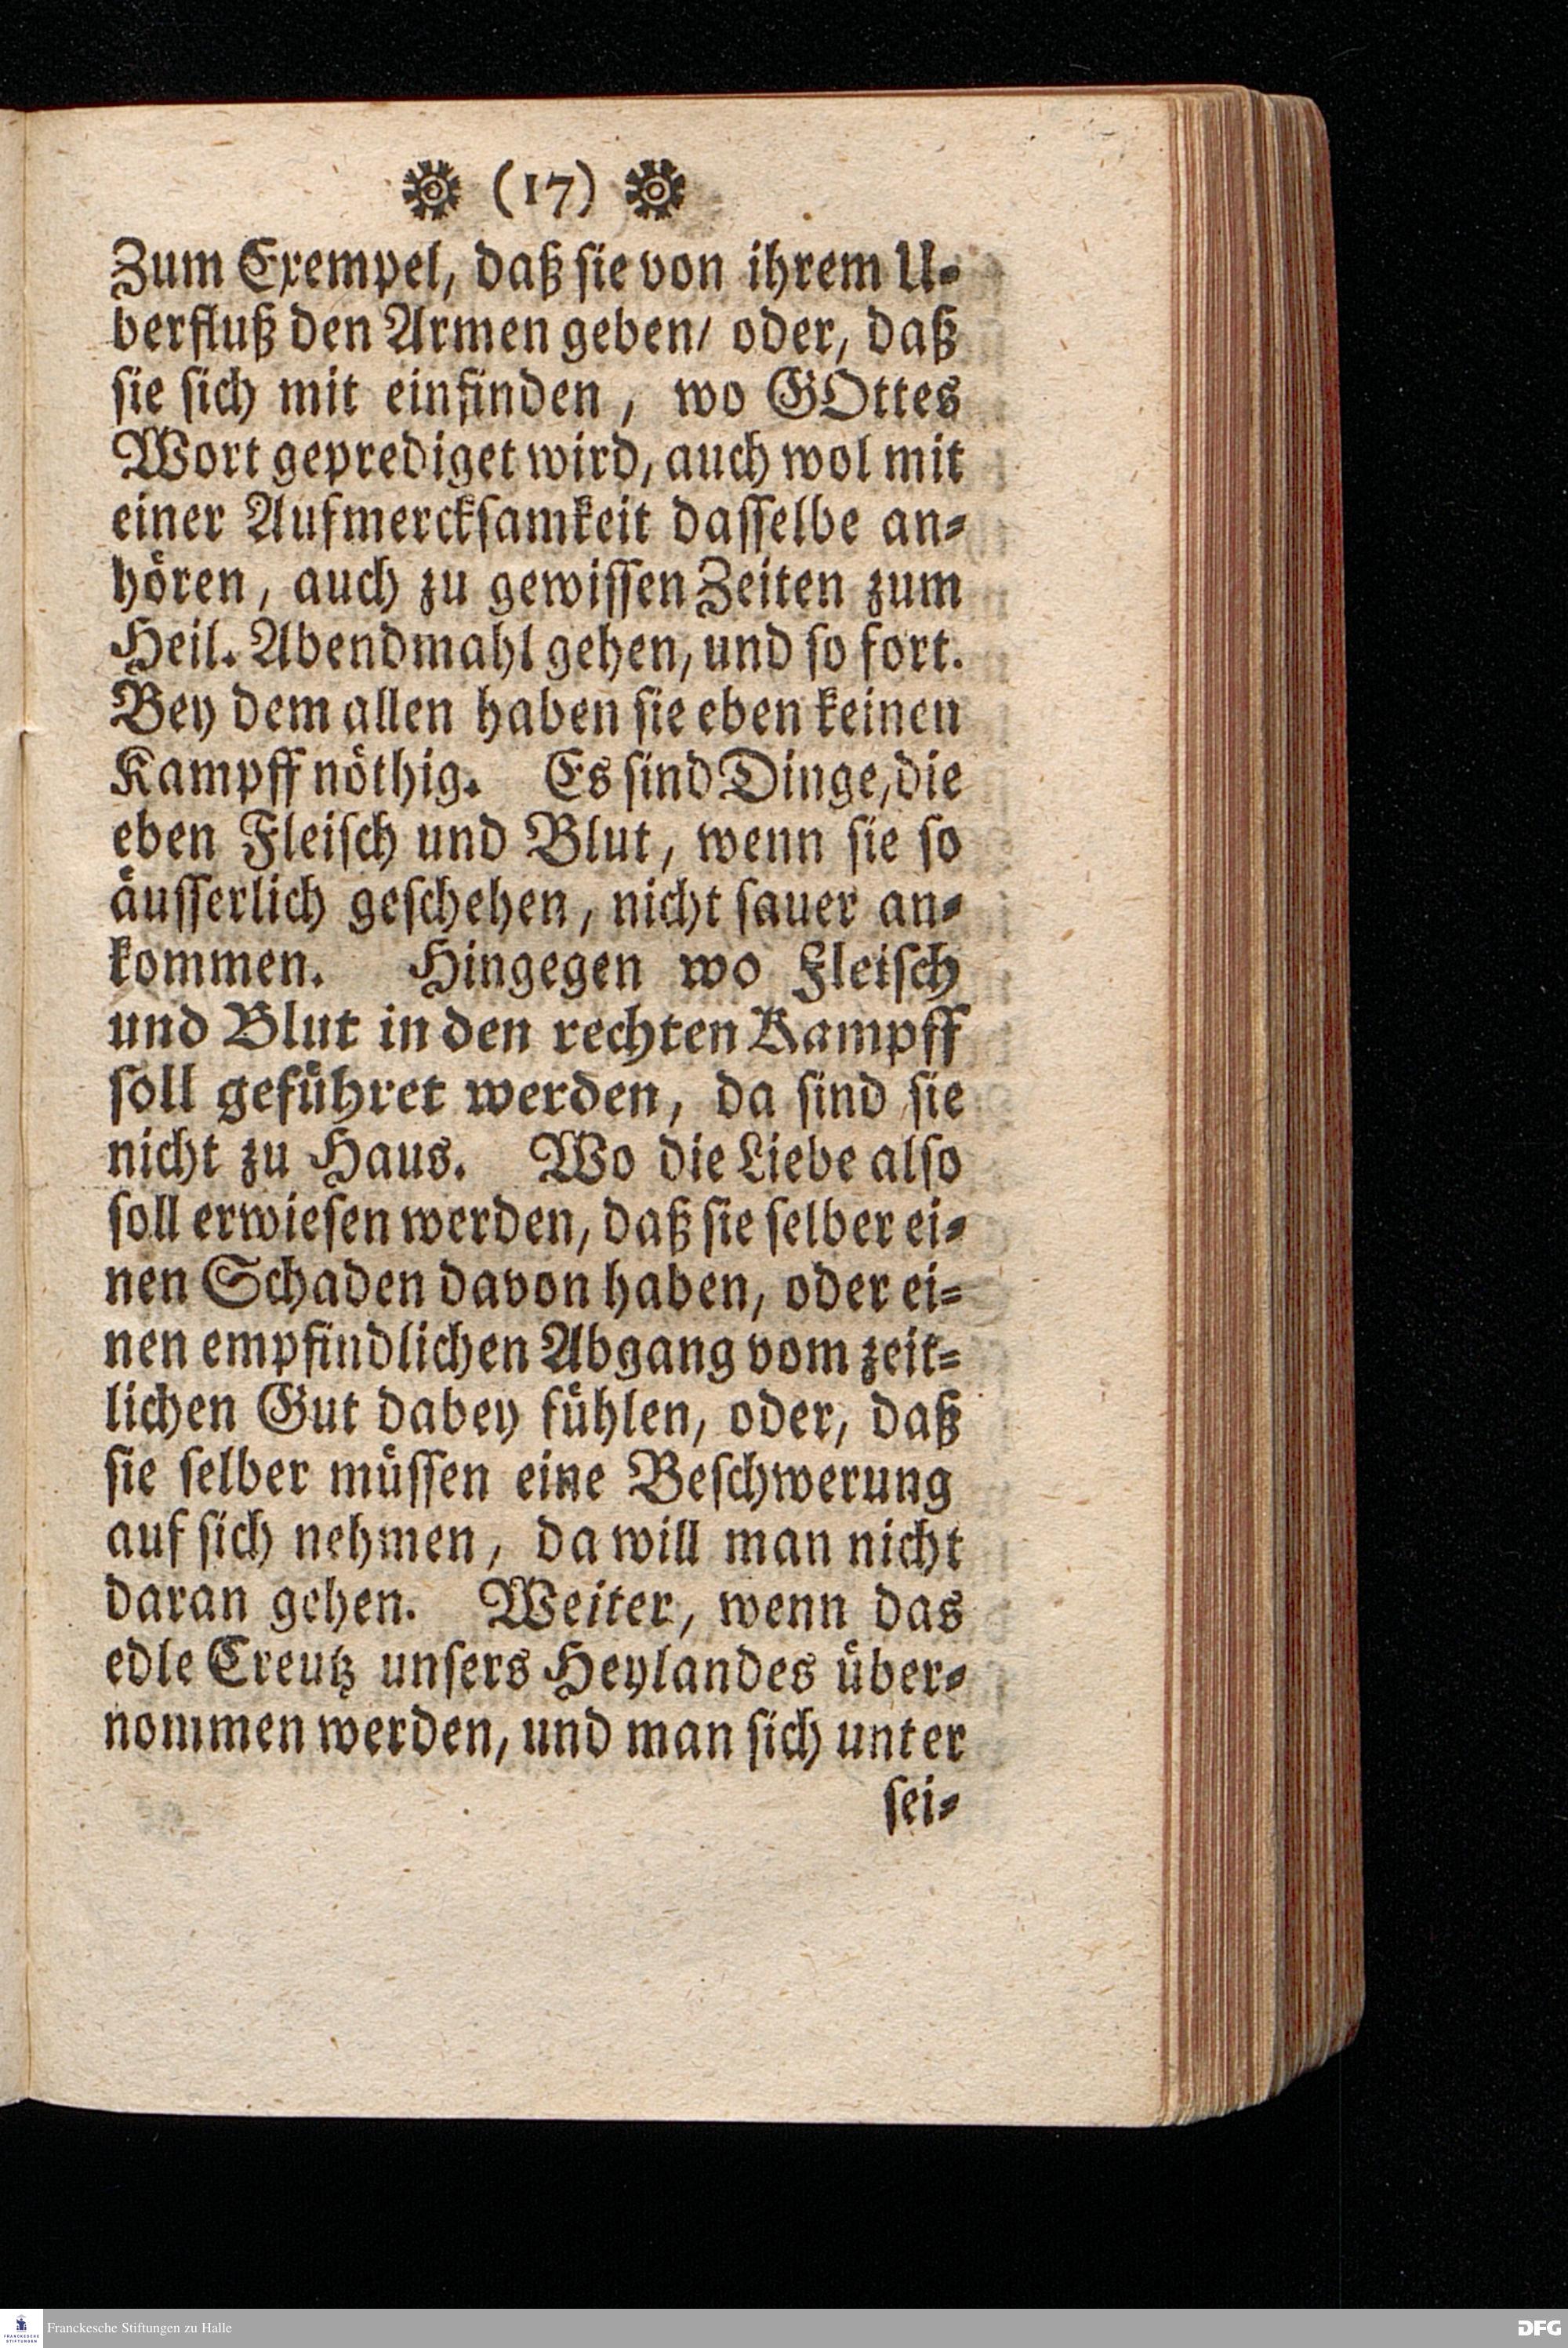 (17)
Zum Exempel, daß sie von ihrem U-
berfluß den Armen geben/ oder, daß
sie sich mit einfinden, wo GOttes
Wort geprediget wird, auch wol mit
einer Aufmercksamkeit dasselbe an-
hören, auch zu gewissen Zeiten zum
Heil. Abendmahl gehen, und so fort.
Bey dem allen haben sie eben keinen
Kampff nöthig. Es sind Dinge, die
eben Fleisch und Blut, wenn sie so
äusserlich geschehen, nicht sauer an-
kommen. Hingegen wo Fleisch
und Blut in den rechten Kampff
soll geführet werden, da sind sie
nicht zu Haus. Wo die Liebe also
soll erwiesen werden, daß sie selber ei-
nen Schaden davon haben, oder ei-
nen empfindlichen Abgang vom zeit-
lichen Gut dabey fühlen, oder, daß
sie selber müssen eine Beschwerung
auf sich nehmen, da will man nicht
daran gehen. Weiter, wenn das
edle Creutz unsers Heylandes über-
nommen werden, und man sich unter
sei-
Franckesche Stiftungen zu Halle
DFG